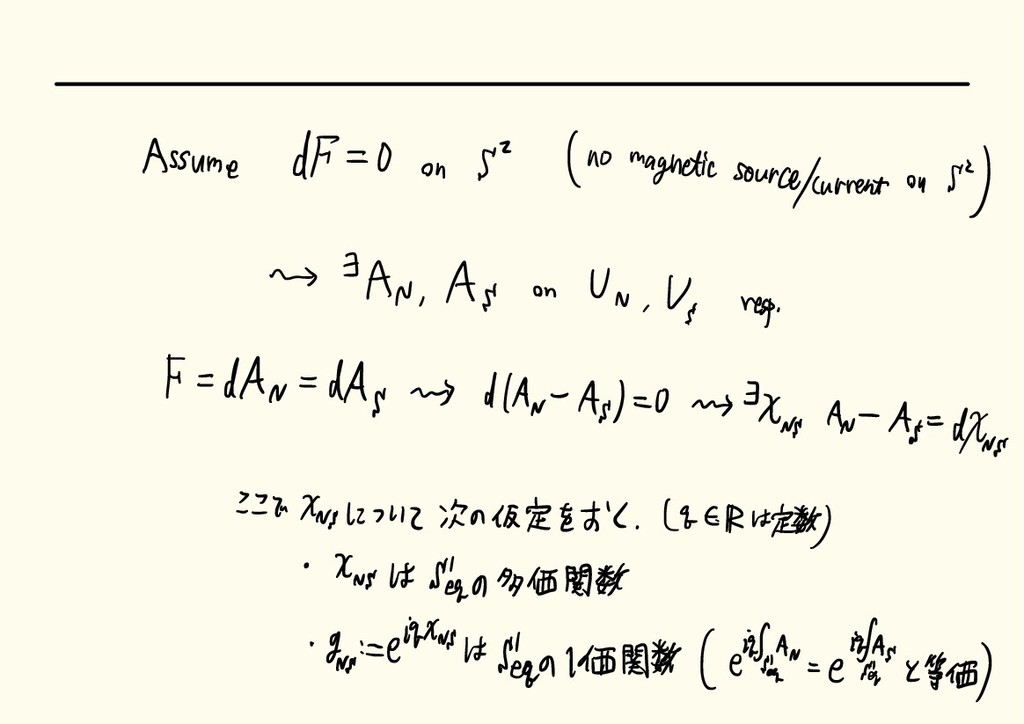 Assume dF=0 on S² (no magnetic source/current on S²)
⇝ ∃A_N, A_S on U_N, U_S resp.
F = dA_N = dA_S ⇝ d(A_N − A_S)=0 ⇝ ∃χ_NS A_N − A_S = dχ_NS
ここで χ_NS について次の仮定をおく. (q ∈ ℝ は定数)
・ χ_NS は S¹_eq の多価関数
・ g_NS := e^{iqχ_NS} は S¹_eq の1価関数 (e^{iq∫_{S¹_eq} A_N} = e^{iq∫_{S¹_eq} A_S} と等価)